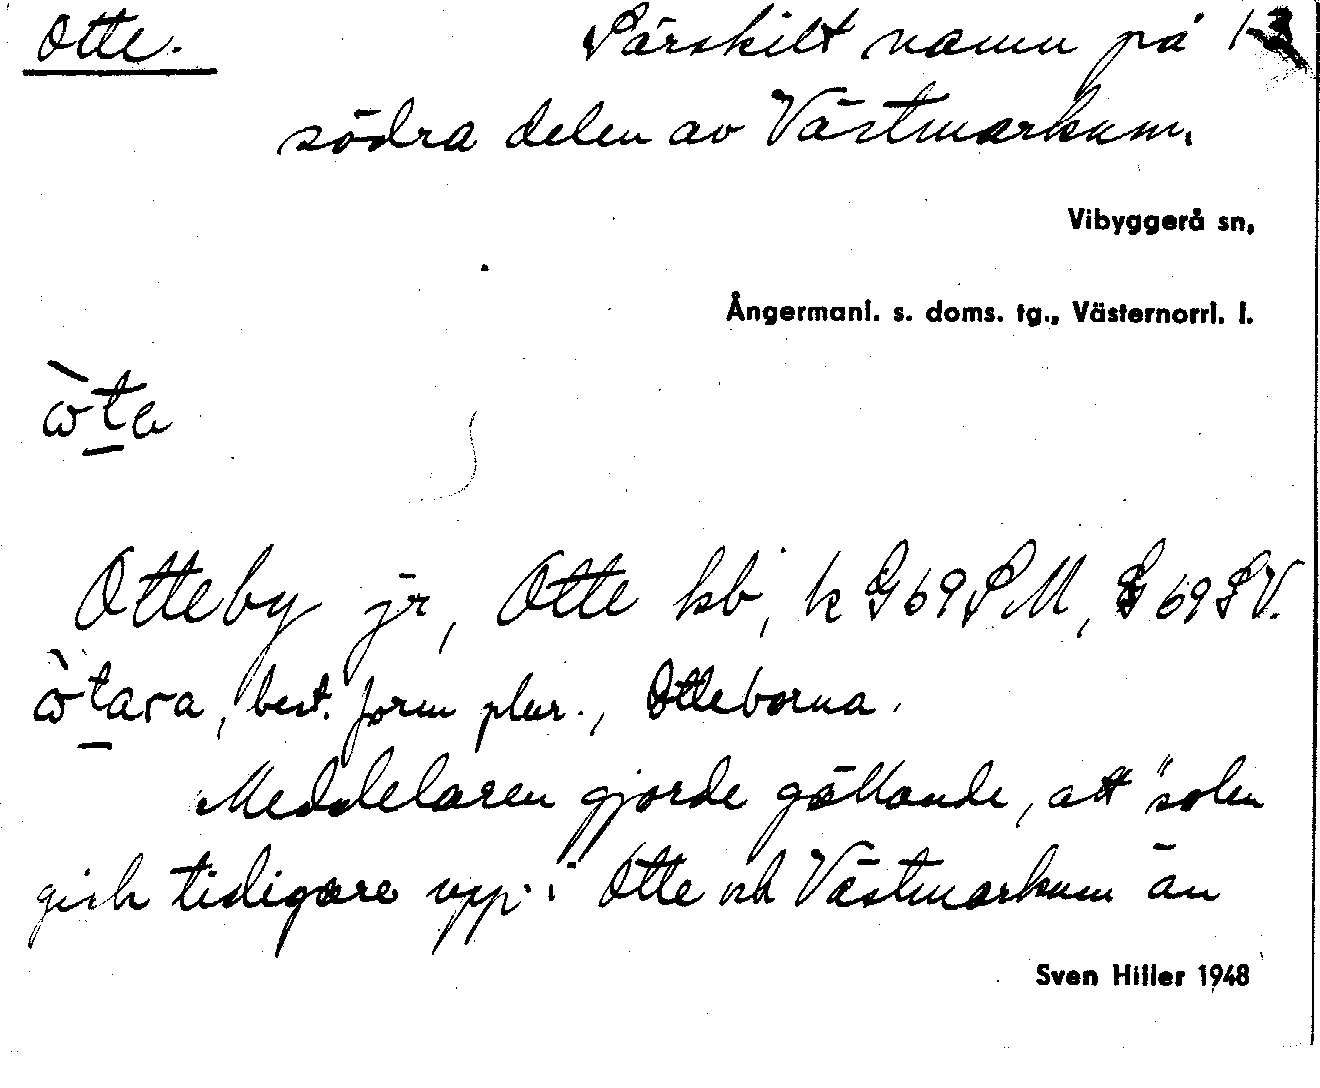 Otte. Särskilt namn på
södra delen av Västmarkum.
Vibyggerå sn,
Ångermanl. s. doms. tg., Västernorrl. l.
ὼta
Otteby jr, Otte kb, k G69SM, G69SV.
ὼtara, best. form plur., Otteborna.
Meddelaren gjorde gällande, att "solen
gick tidigare upp i Otte och Västmarkum än
Sven Hiller 1948